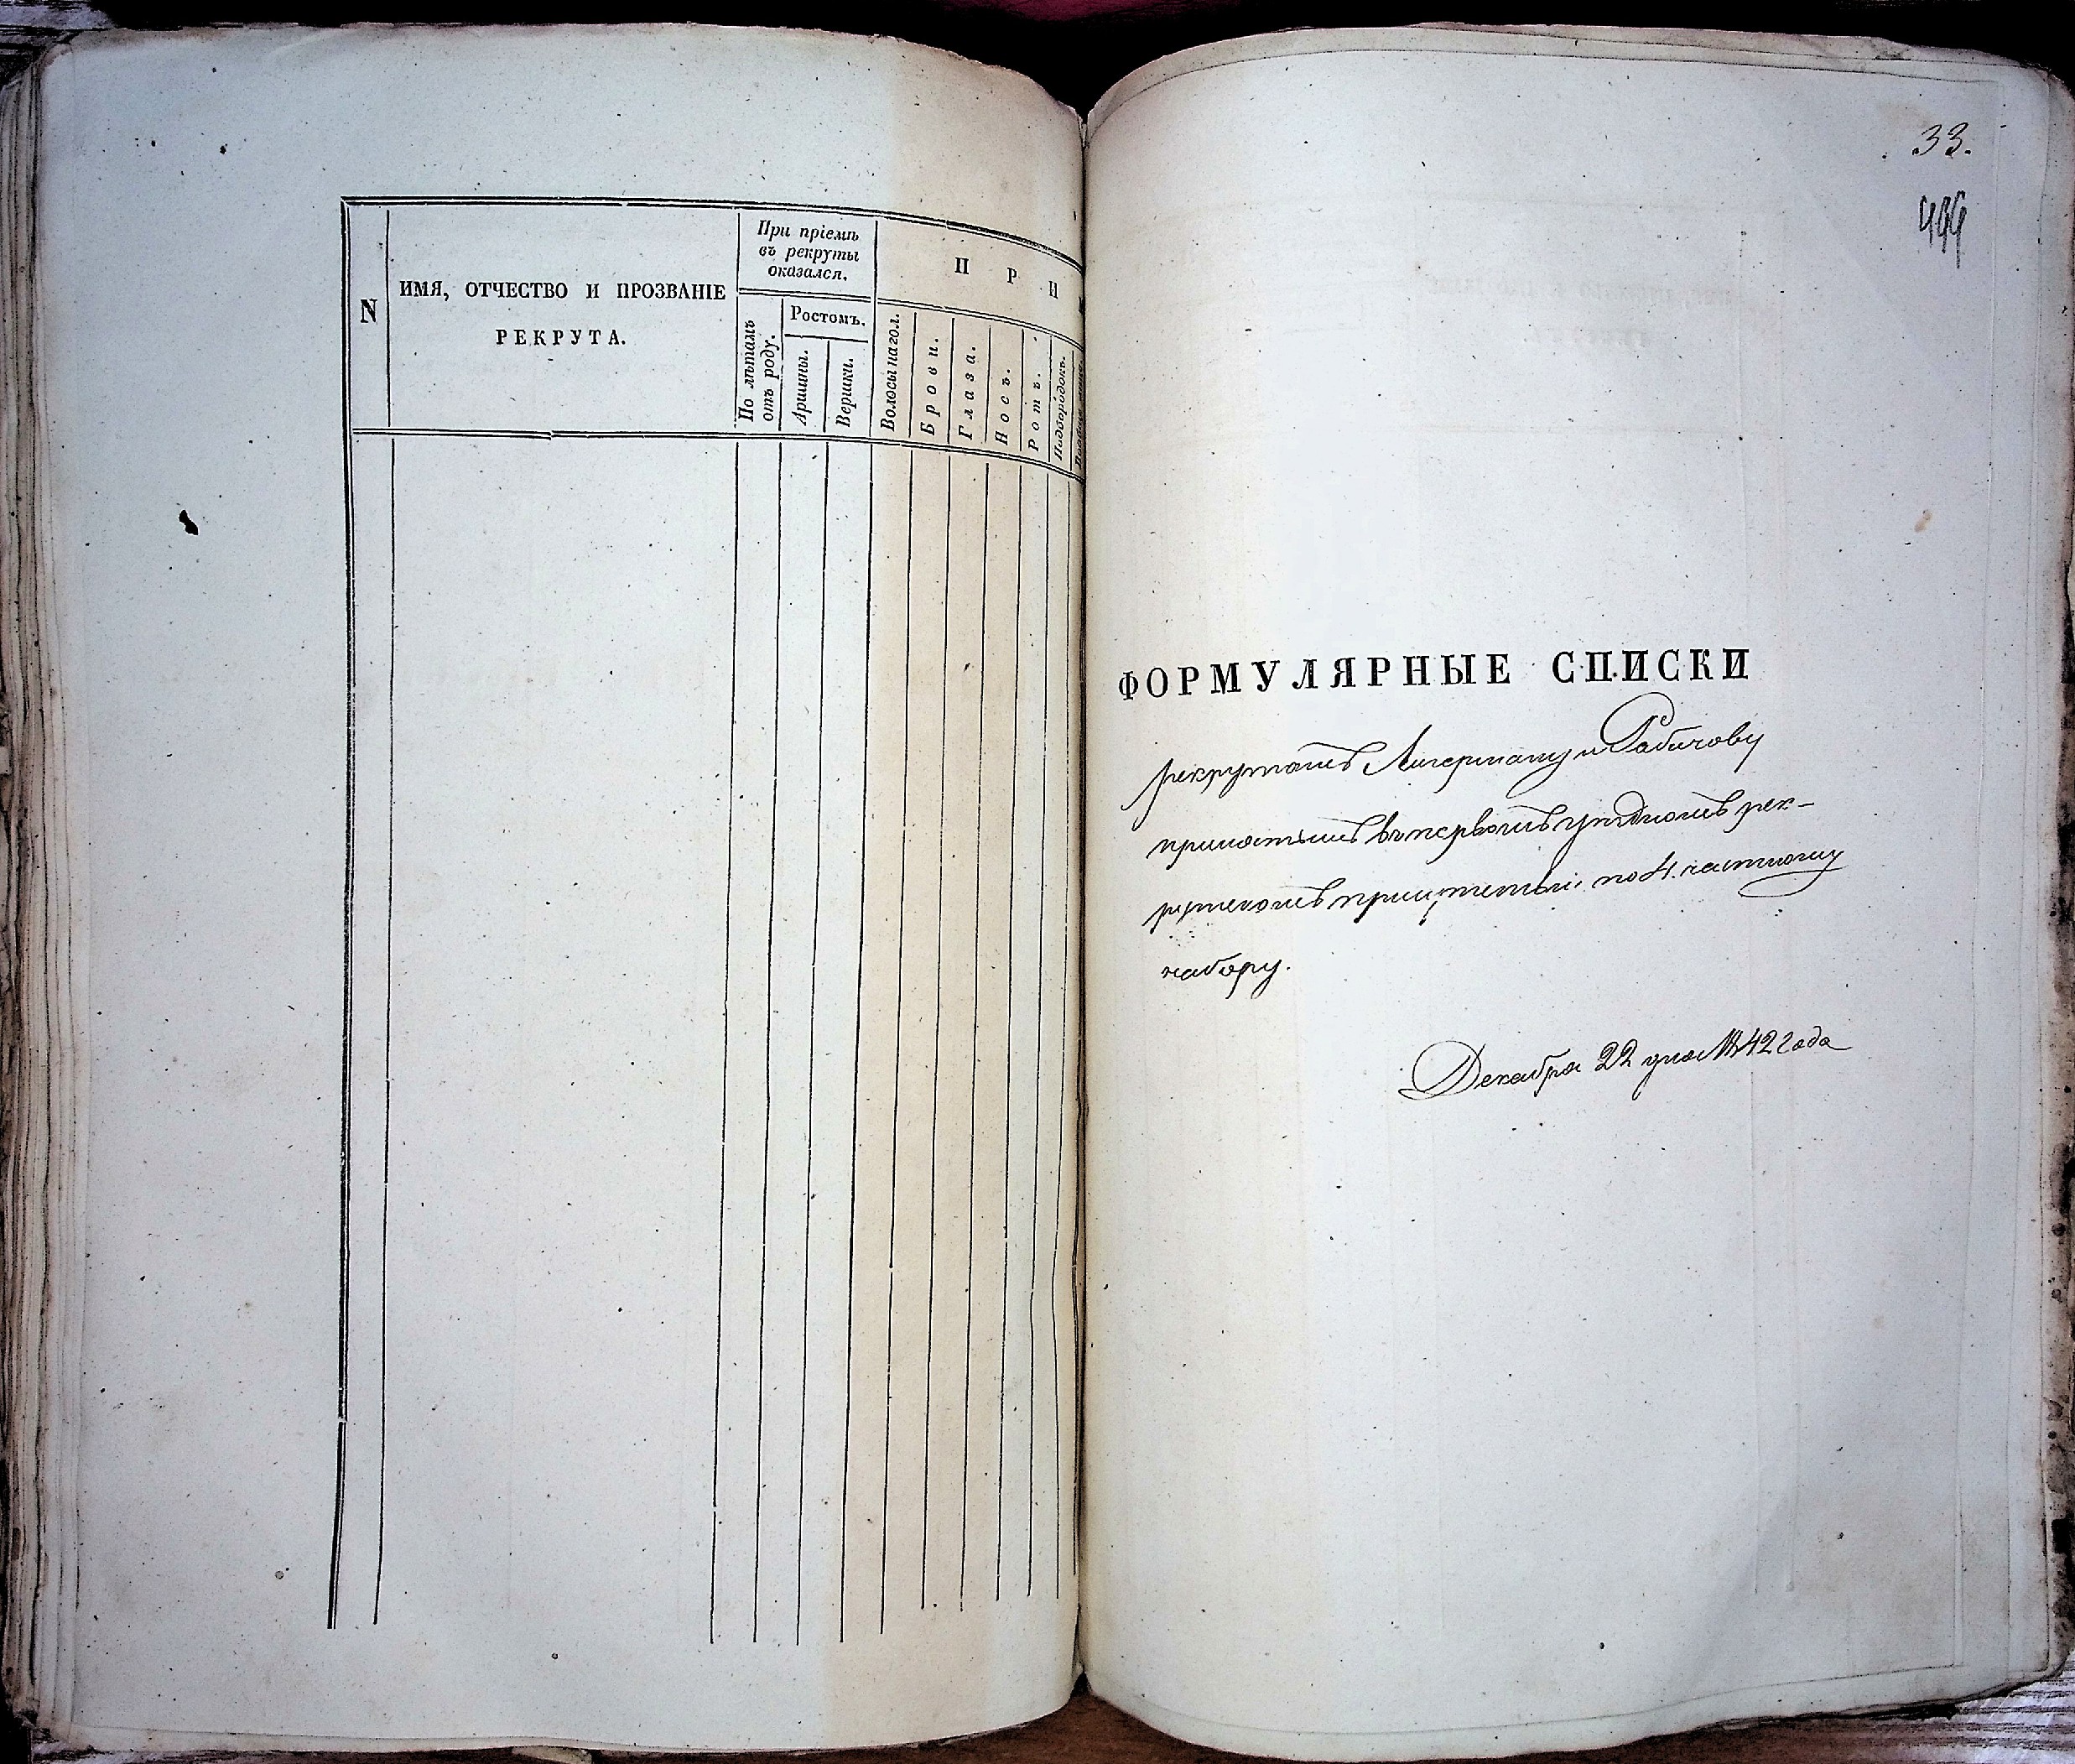 N
ИМЯ, ОТЧЕСТВО И ПРОЗВАНІЕ
РЕКРУТА.
При пріемѣ
въ рекруты
оказался.
По лѣтамъ
отъ роду.
Ростомъ.
Аршины.
Вершки.
П Р И
Волосы на гол.
Брови.
Глаза.
Носъ.
Ротъ.
Подбородокъ.
33.
ФОРМУЛЯРНЫЕ СПИСКИ
рекрутамъ Лигерману и Рабичову
принятымъ въ первомъ уѣздномъ рек-
рутскомъ присутствіи по 4. частному
набору.
Декабря 22 дня 1842 года